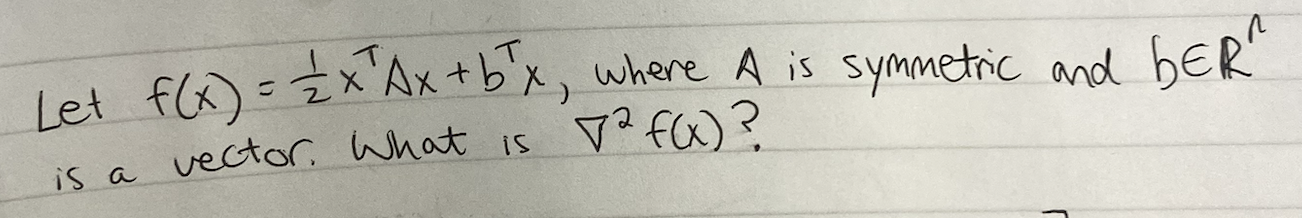 Let f(x) = ½ xᵀAx + bᵀx, where A is symmetric and b∈ℝⁿ
is a vector. What is ∇² f(x)?